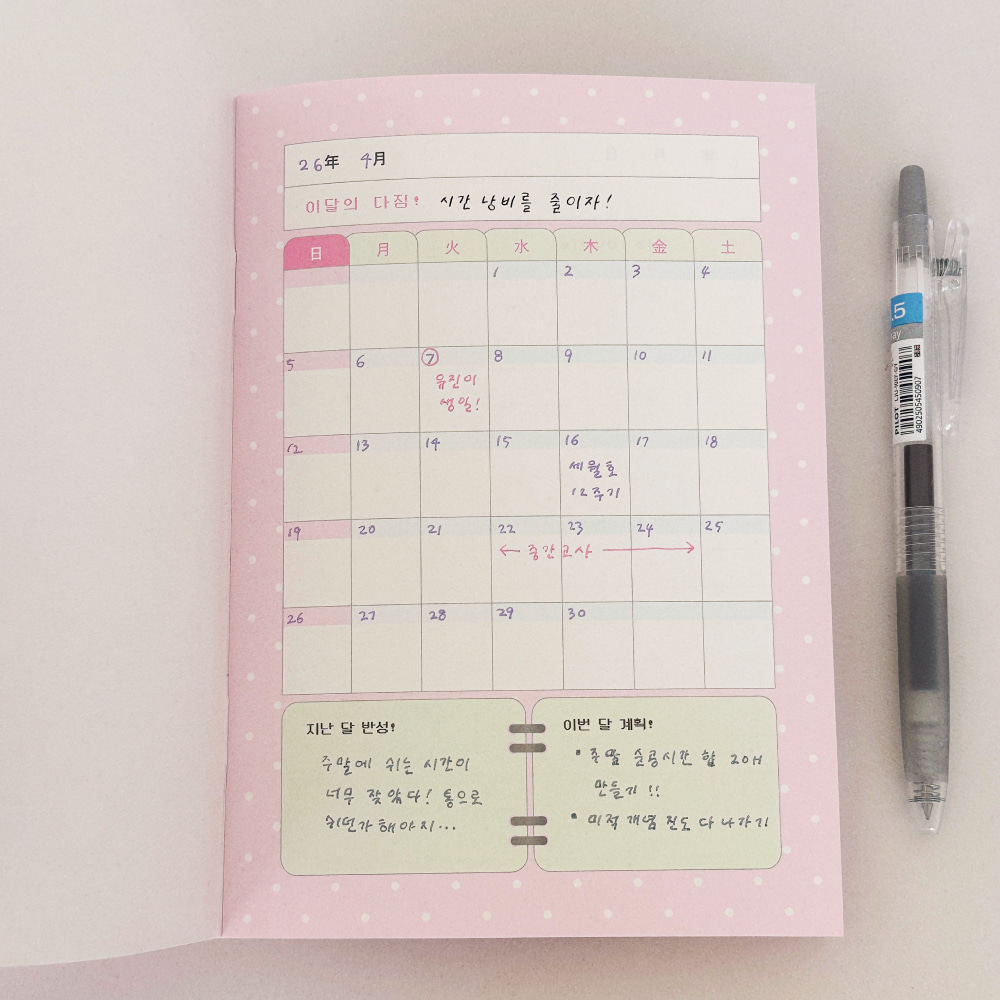 26年 4月
이달의 다짐! 시간 낭비를 줄이자!
日 月 火 水 木 金 土
1 2 3 4
5 6 7 8 9 10 11
유진이
생일!
12 13 14 15 16 17 18
세월호
12주기
19 20 21 22 23 24 25
← 중간고사 →
26 27 28 29 30
지난 달 반성!
주말에 쉬는 시간이
너무 잦았다! 통으로
쉬던가 해야지...
이번 달 계획!
• 주말 순공시간 합 20H
만들기 !!
• 미적 개념 진도 다 나가기
.5
PILOT
4902505450907